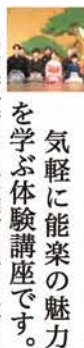 気軽に能楽の魅力
を学ぶ体験講座です。